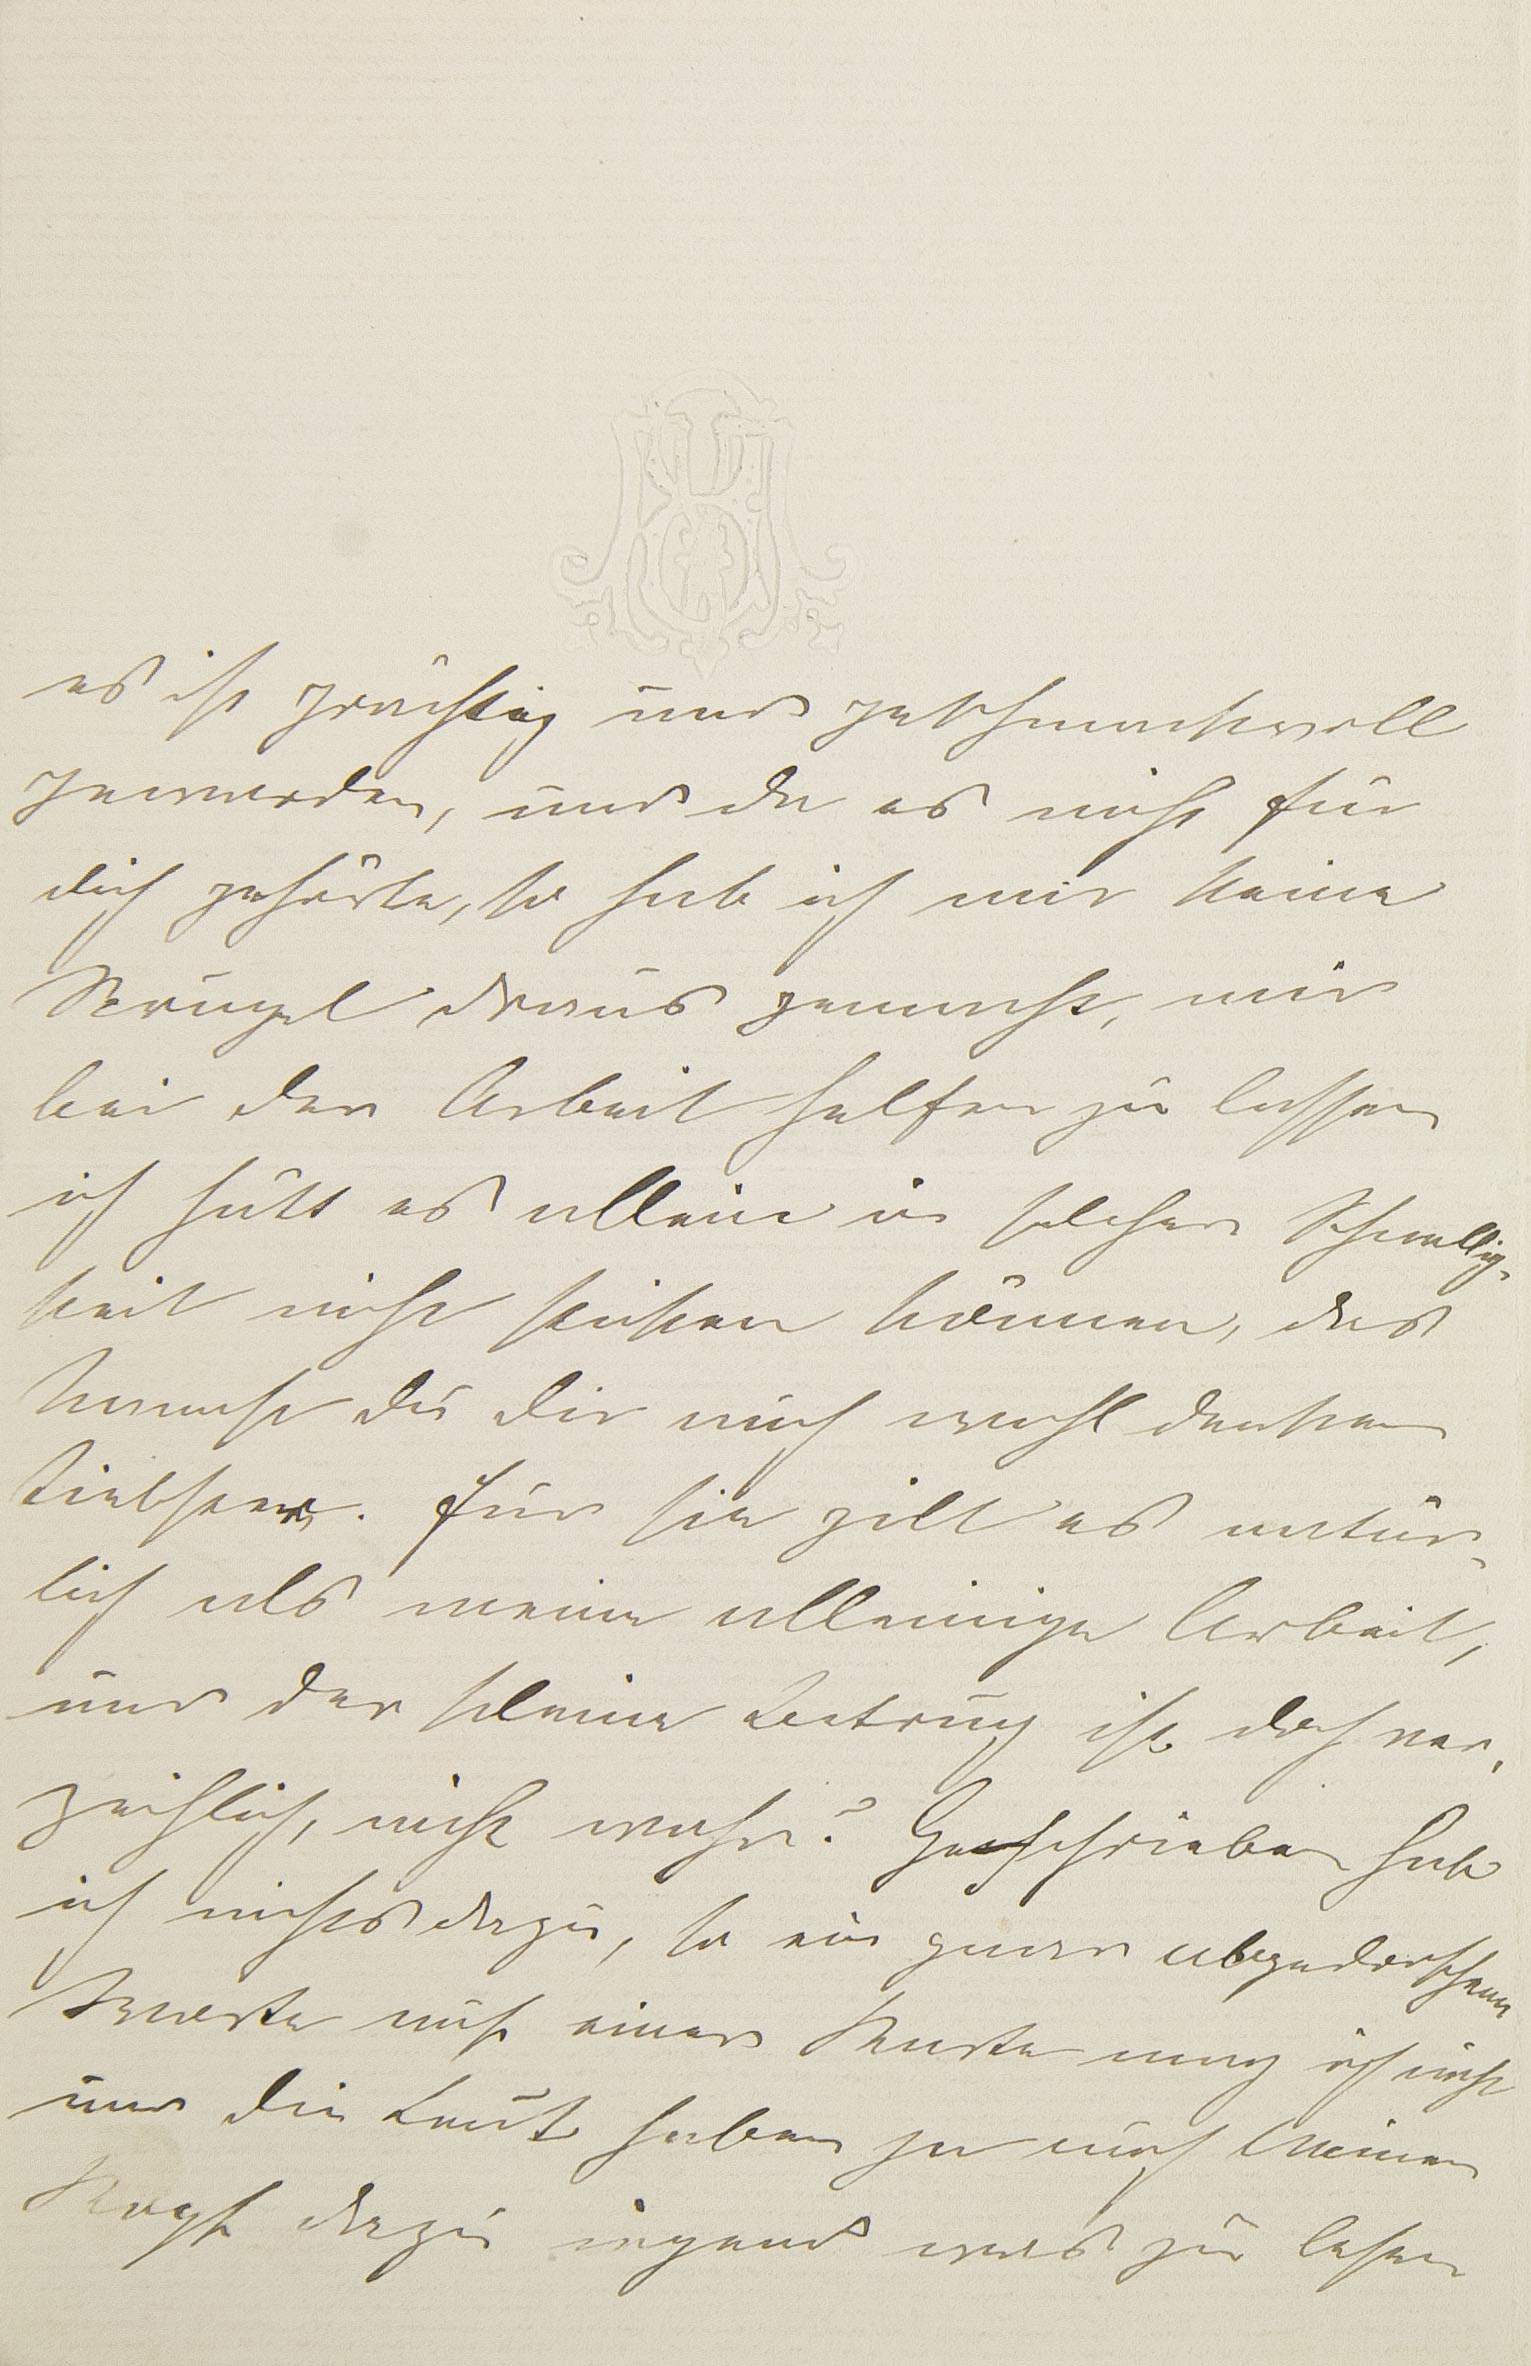 es ist prächtig und geschmackvoll
geworden, und da es nicht für
dich gehörte, so hab ich mir keine
Skrupel draus gemacht, mir
bei der Arbeit helfen zu lassen
ich hätt es allein in solcher Schnellig-
keit nicht sticken können, das
kannst du dir auch wohl denken
Liebster. Für sie gilt es natür-
lich als meine alleinige Arbeit,
und der kleine Betrug ist doch ver-
zeihlich, nicht wahr? Geschrieben hab
ich nichts dazu, so ein paar abgedroschene
Worte auf einer Karte mag ich nicht
und die Leute haben ja auch keinen
Kopf dazu irgend was zu lesen